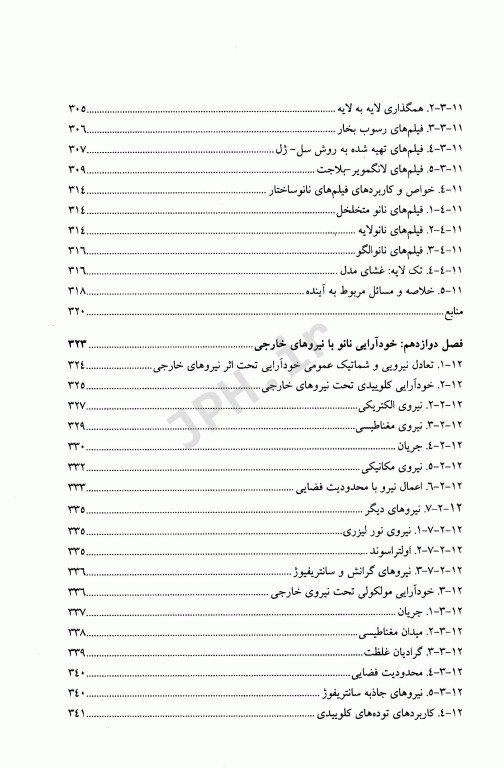 ۱۱-۳-۲. همگذاری لایه به لایه ........ ۳۰۵
۱۱-۳-۳. فیلم‌های رسوب بخار ........ ۳۰۶
۱۱-۳-۴. فیلم‌های تهیه شده به روش سل- ژل ........ ۳۰۷
۱۱-۳-۵. فیلم‌های لانگمویر-بلاجت ........ ۳۰۹
۱۱-۴. خواص و کاربردهای فیلم‌های نانوساختار ........ ۳۱۴
۱۱-۴-۱. فیلم‌های نانو متخلخل ........ ۳۱۴
۱۱-۴-۲. فیلم‌های نانولایه ........ ۳۱۴
۱۱-۴-۳. فیلم‌های نانوالگو ........ ۳۱۶
۱۱-۴-۴. تک لایه: غشای مدل ........ ۳۱۶
۱۱-۵. خلاصه و مسائل مربوط به آینده ........ ۳۱۸
منابع ........ ۳۲۰
فصل دوازدهم: خودآرایی نانو با نیروهای خارجی ........ ۳۲۳
۱۲-۱. تعادل نیرویی و شماتیک عمومی خودآرایی تحت اثر نیروهای خارجی ........ ۳۲۴
۱۲-۲. خودآرایی کلوییدی تحت نیروهای خارجی ........ ۳۲۵
۱۲-۲-۲. نیروی الکتریکی ........ ۳۲۷
۱۲-۲-۳. نیروی مغناطیسی ........ ۳۲۹
۱۲-۲-۴. جریان ........ ۳۳۰
۱۲-۲-۵. نیروی مکانیکی ........ ۳۳۲
۱۲-۲-۶. اعمال نیرو با محدودیت فضایی ........ ۳۳۳
۱۲-۲-۷. نیروهای دیگر ........ ۳۳۵
۱۲-۲-۷-۱. نیروی نور لیزری ........ ۳۳۵
۱۲-۲-۷-۲. اولتراسوند ........ ۳۳۵
۱۲-۲-۷-۳. نیروهای گرانش و سانتریفیوژ ........ ۳۳۶
۱۲-۳. خودآرایی مولکولی تحت نیروی خارجی ........ ۳۳۶
۱۲-۳-۱. جریان ........ ۳۳۷
۱۲-۳-۲. میدان مغناطیسی ........ ۳۳۸
۱۲-۳-۳. گرادیان غلظت ........ ۳۳۹
۱۲-۳-۴. محدودیت فضایی ........ ۳۴۰
۱۲-۳-۵. نیروهای جاذبه سانتریفوژ ........ ۳۴۰
۱۲-۴. کاربردهای توده‌های کلوییدی ........ ۳۴۱
JPH.ir